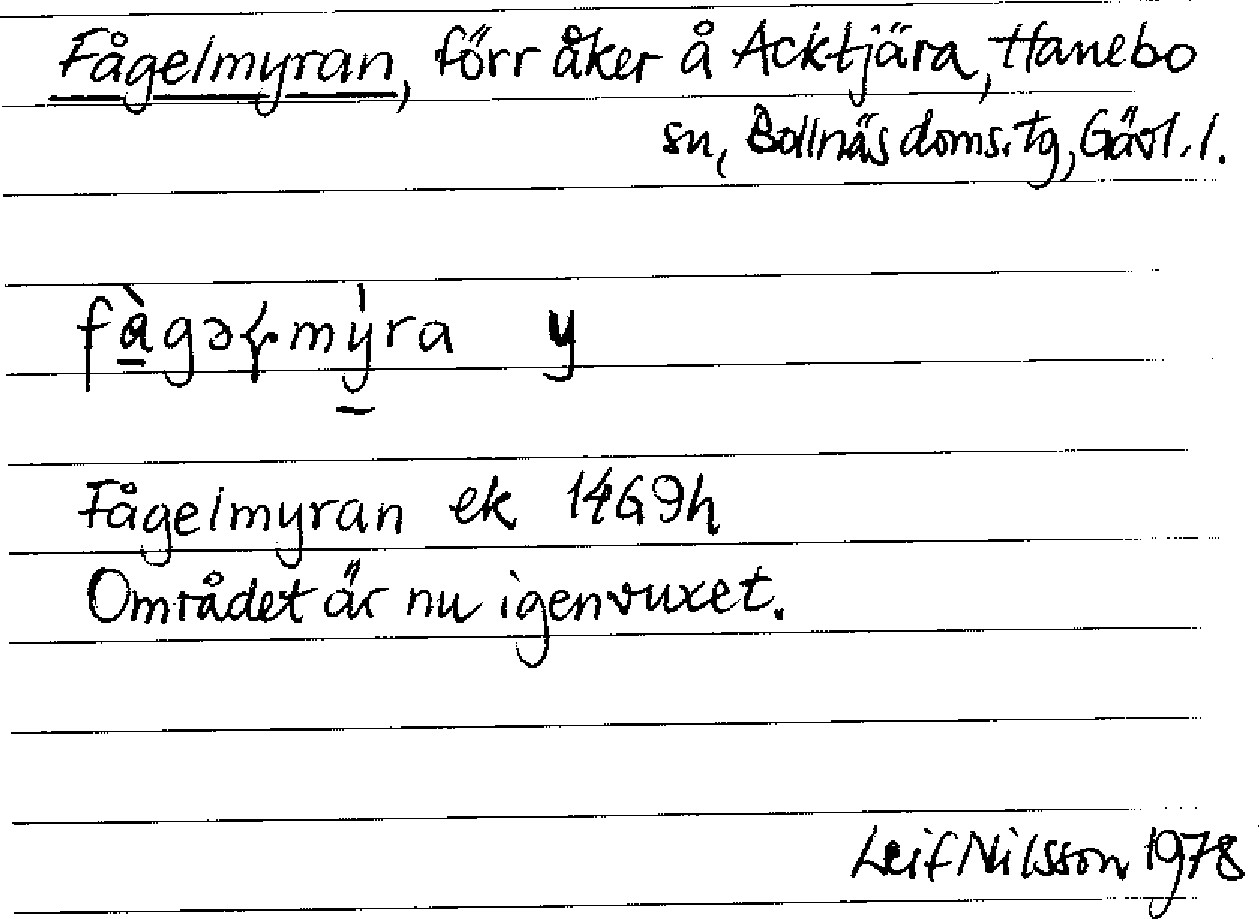 Fågelmyran, förr åker å Acktjära, Hanebo
sn, Bollnäs doms. tg, Gävl. l.
fàgəɽmýra y
Fågelmyran ek 14G9h
Området är nu igenvuxet.
Leif Nilsson 1978